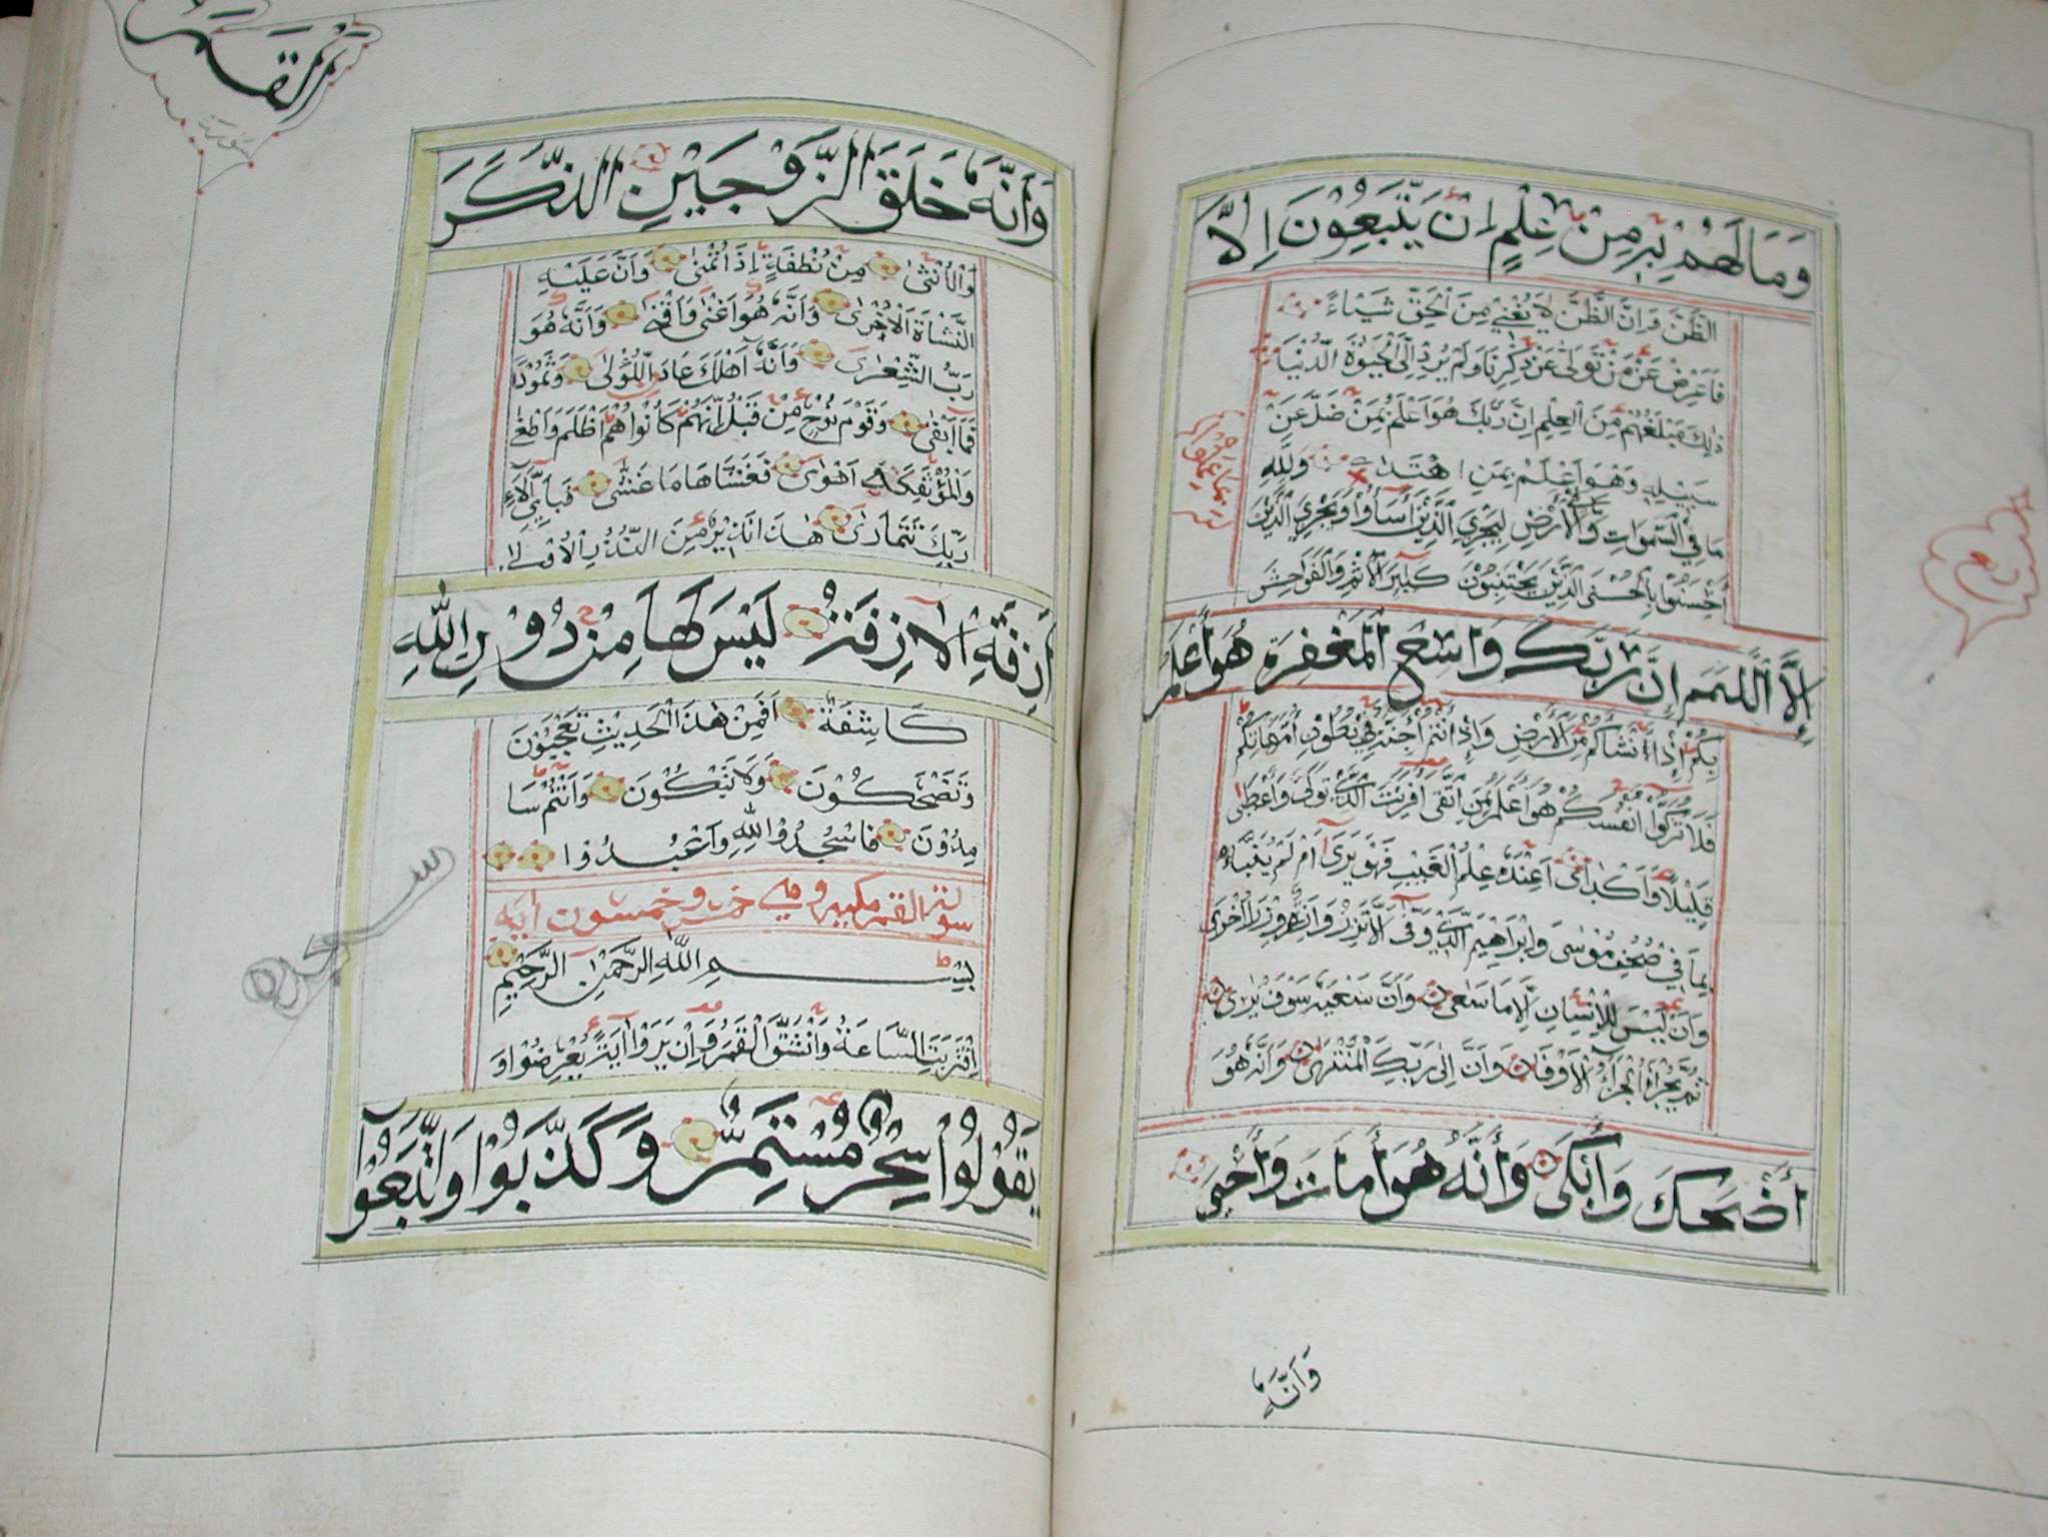 وَمَا لَهُمْ بِهِ مِنْ عِلْمٍ اِنْ يَتَّبِعُونَ اِلَّا
الظَّنَّ وَاِنَّ الظَّنَّ لَا يُغْنِي مِنَ الْحَقِّ شَيْـًٔا
فَاَعْرِضْ عَنْ مَنْ تَوَلّٰى عَنْ ذِكْرِنَا وَلَمْ يُرِدْ اِلَّا الْحَيٰوةَ الدُّنْيَا
ذٰلِكَ مَبْلَغُهُمْ مِنَ الْعِلْمِ اِنَّ رَبَّكَ هُوَ اَعْلَمُ بِمَنْ ضَلَّ عَنْ
سَبِيْلِهِ وَهُوَ اَعْلَمُ بِمَنِ اهْتَدٰى وَلِلّٰهِ
مَا فِي السَّمٰوَاتِ وَمَا فِي الْاَرْضِ لِيَجْزِيَ الَّذِيْنَ اَسَاۤؤُا وَيَجْزِيَ الَّذِيْنَ
اَحْسَنُوْا بِالْحُسْنَى الَّذِيْنَ يَجْتَنِبُوْنَ كَبٰۤئِرَ الْاِثْمِ وَالْفَوَاحِشَ
اِلَّا اللَّمَمَ اِنَّ رَبَّكَ وَاسِعُ الْمَغْفِرَةِ هُوَ اَعْلَمُ
بِكُمْ اِذْ اَنْشَاَكُمْ مِنَ الْاَرْضِ وَاِذْ اَنْتُمْ اَجِنَّةٌ فِي بُطُوْنِ اُمَّهَاتِكُمْ
فَلَا تُزَكُّوْا اَنْفُسَكُمْ هُوَ اَعْلَمُ بِمَنِ اتَّقٰى اَفَرَاَيْتَ الَّذِي تَوَلّٰى وَاَعْطٰى
قَلِيْلًا وَاَكْدٰى اَعِنْدَهُ عِلْمُ الْغَيْبِ فَهُوَ يَرٰى اَمْ لَمْ يُنَبَّأْ
بِمَا فِي صُحُفِ مُوْسٰى وَاِبْرَاهِيْمَ الَّذِي وَفّٰى اَلَّا تَزِرُ وَازِرَةٌ وِزْرَ اُخْرٰى
وَاَنْ لَيْسَ لِلْاِنْسَانِ اِلَّا مَا سَعٰى وَاَنَّ سَعْيَهُ سَوْفَ يُرٰى
ثُمَّ يُجْزٰهُ الْجَزَاۤءَ الْاَوْفٰى وَاَنَّ اِلٰى رَبِّكَ الْمُنْتَهٰى وَاَنَّهُ هُوَ
اَضْحَكَ وَاَبْكٰى وَاَنَّهُ هُوَ اَمَاتَ وَاَحْيٰى
وَاَنَّهُ
القمر
سورة
وَاَنَّهُ خَلَقَ الزَّوْجَيْنِ الذَّكَرَ
وَالْاُنْثٰى مِنْ نُطْفَةٍ اِذَا تُمْنٰى وَاَنَّ عَلَيْهِ
النَّشْاَةَ الْاُخْرٰى وَاَنَّهُ هُوَ اَغْنٰى وَاَقْنٰى وَاَنَّهُ هُوَ
رَبُّ الشِّعْرٰى وَاَنَّهُ اَهْلَكَ عَادَ اللُّوْلٰى وَثَمُوْدَا
فَمَا اَبْقٰى وَقَوْمَ نُوْحٍ مِنْ قَبْلُ اِنَّهُمْ كَانُوْا هُمْ اَظْلَمَ وَاَطْغٰى
وَالْمُؤْتَفِكَةَ اَهْوٰى فَغَشَّاهَا مَا غَشّٰى فَبِاَيِّ اٰلَاۤءِ
رَبِّكَ تَتَمَارٰى هٰذَا نَذِيْرٌ مِنَ النُّذُرِ الْاُوْلٰى
اَزِفَتِ الْاٰزِفَةُ لَيْسَ لَهَا مِنْ دُوْنِ اللّٰهِ
كَاشِفَةٌ اَفَمِنْ هٰذَا الْحَدِيْثِ تَعْجَبُوْنَ
وَتَضْحَكُوْنَ وَلَا تَبْكُوْنَ وَاَنْتُمْ سَا
مِدُوْنَ فَاسْجُدُوْا لِلّٰهِ وَاعْبُدُوْا
سجدة
سورة القمر مكية وهي خمس وخمسون آية
بِسْمِ اللّٰهِ الرَّحْمٰنِ الرَّحِيْمِ
اِقْتَرَبَتِ السَّاعَةُ وَانْشَقَّ الْقَمَرُ وَاِنْ يَرَوْا اٰيَةً يُعْرِضُوْا وَ
يَقُوْلُوْا سِحْرٌ مُسْتَمِرٌّ وَكَذَّبُوْا وَاتَّبَعُوْٓا